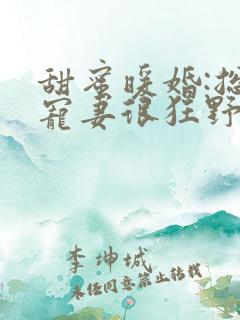 甜蜜暖婚:总
宠妻很狂野
李坤城
未经同意禁止转载